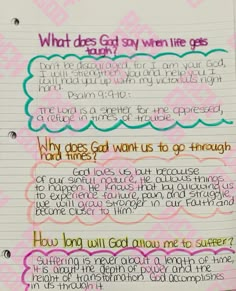 What does God say when life gets
tough?
Don't be discouraged, for I am your God,
I will strengthen you and help you. I
will hold you up with my victorious right
hand.
Psalm 9:9-10:
The Lord is a shelter for the oppressed,
a refuge in times of trouble.
Why does God want us to go through
hard times?
God loves us but because
of our sinful nature, He allows things
to happen. He knows that by allowing us
to experience failure, pain, and struggle,
we will draw stronger in our Faith and
become closer to Him.
How long will God allow me to suffer?
Suffering is never about a length of time,
it is about the depth of power and the
height of transformation God accomplishes
in us through it.